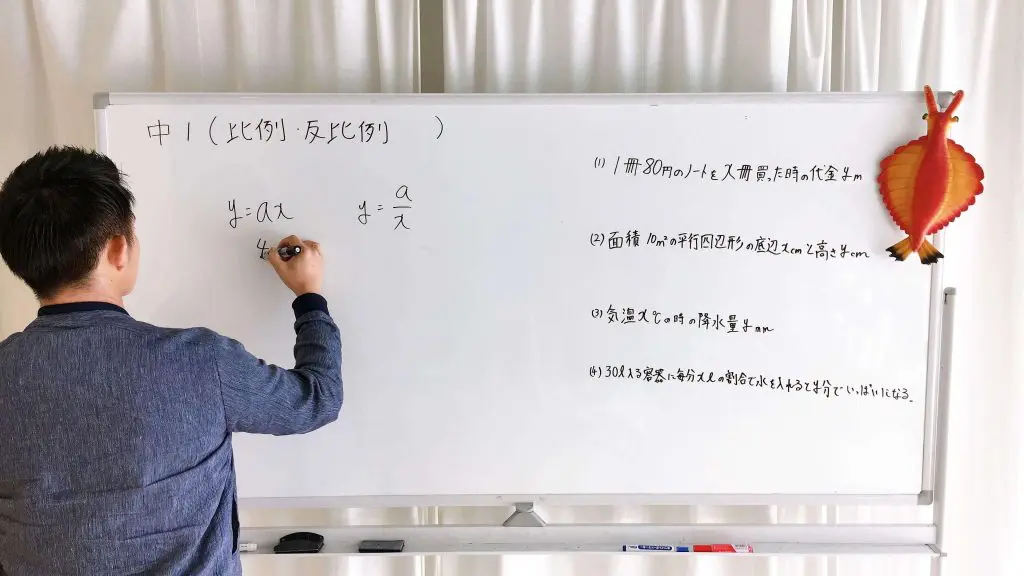 中1(比例・反比例 )
y=ax
y=a/x
(1) 1冊80円のノートをx冊買った時の代金ym
(2) 面積10m²の平行四辺形の底辺xcmと高さycm
(3) 気温x℃の時の降水量ymm
(4) 30l入る容器に毎分xlの割合で水を入れるとy分でいっぱいになる。